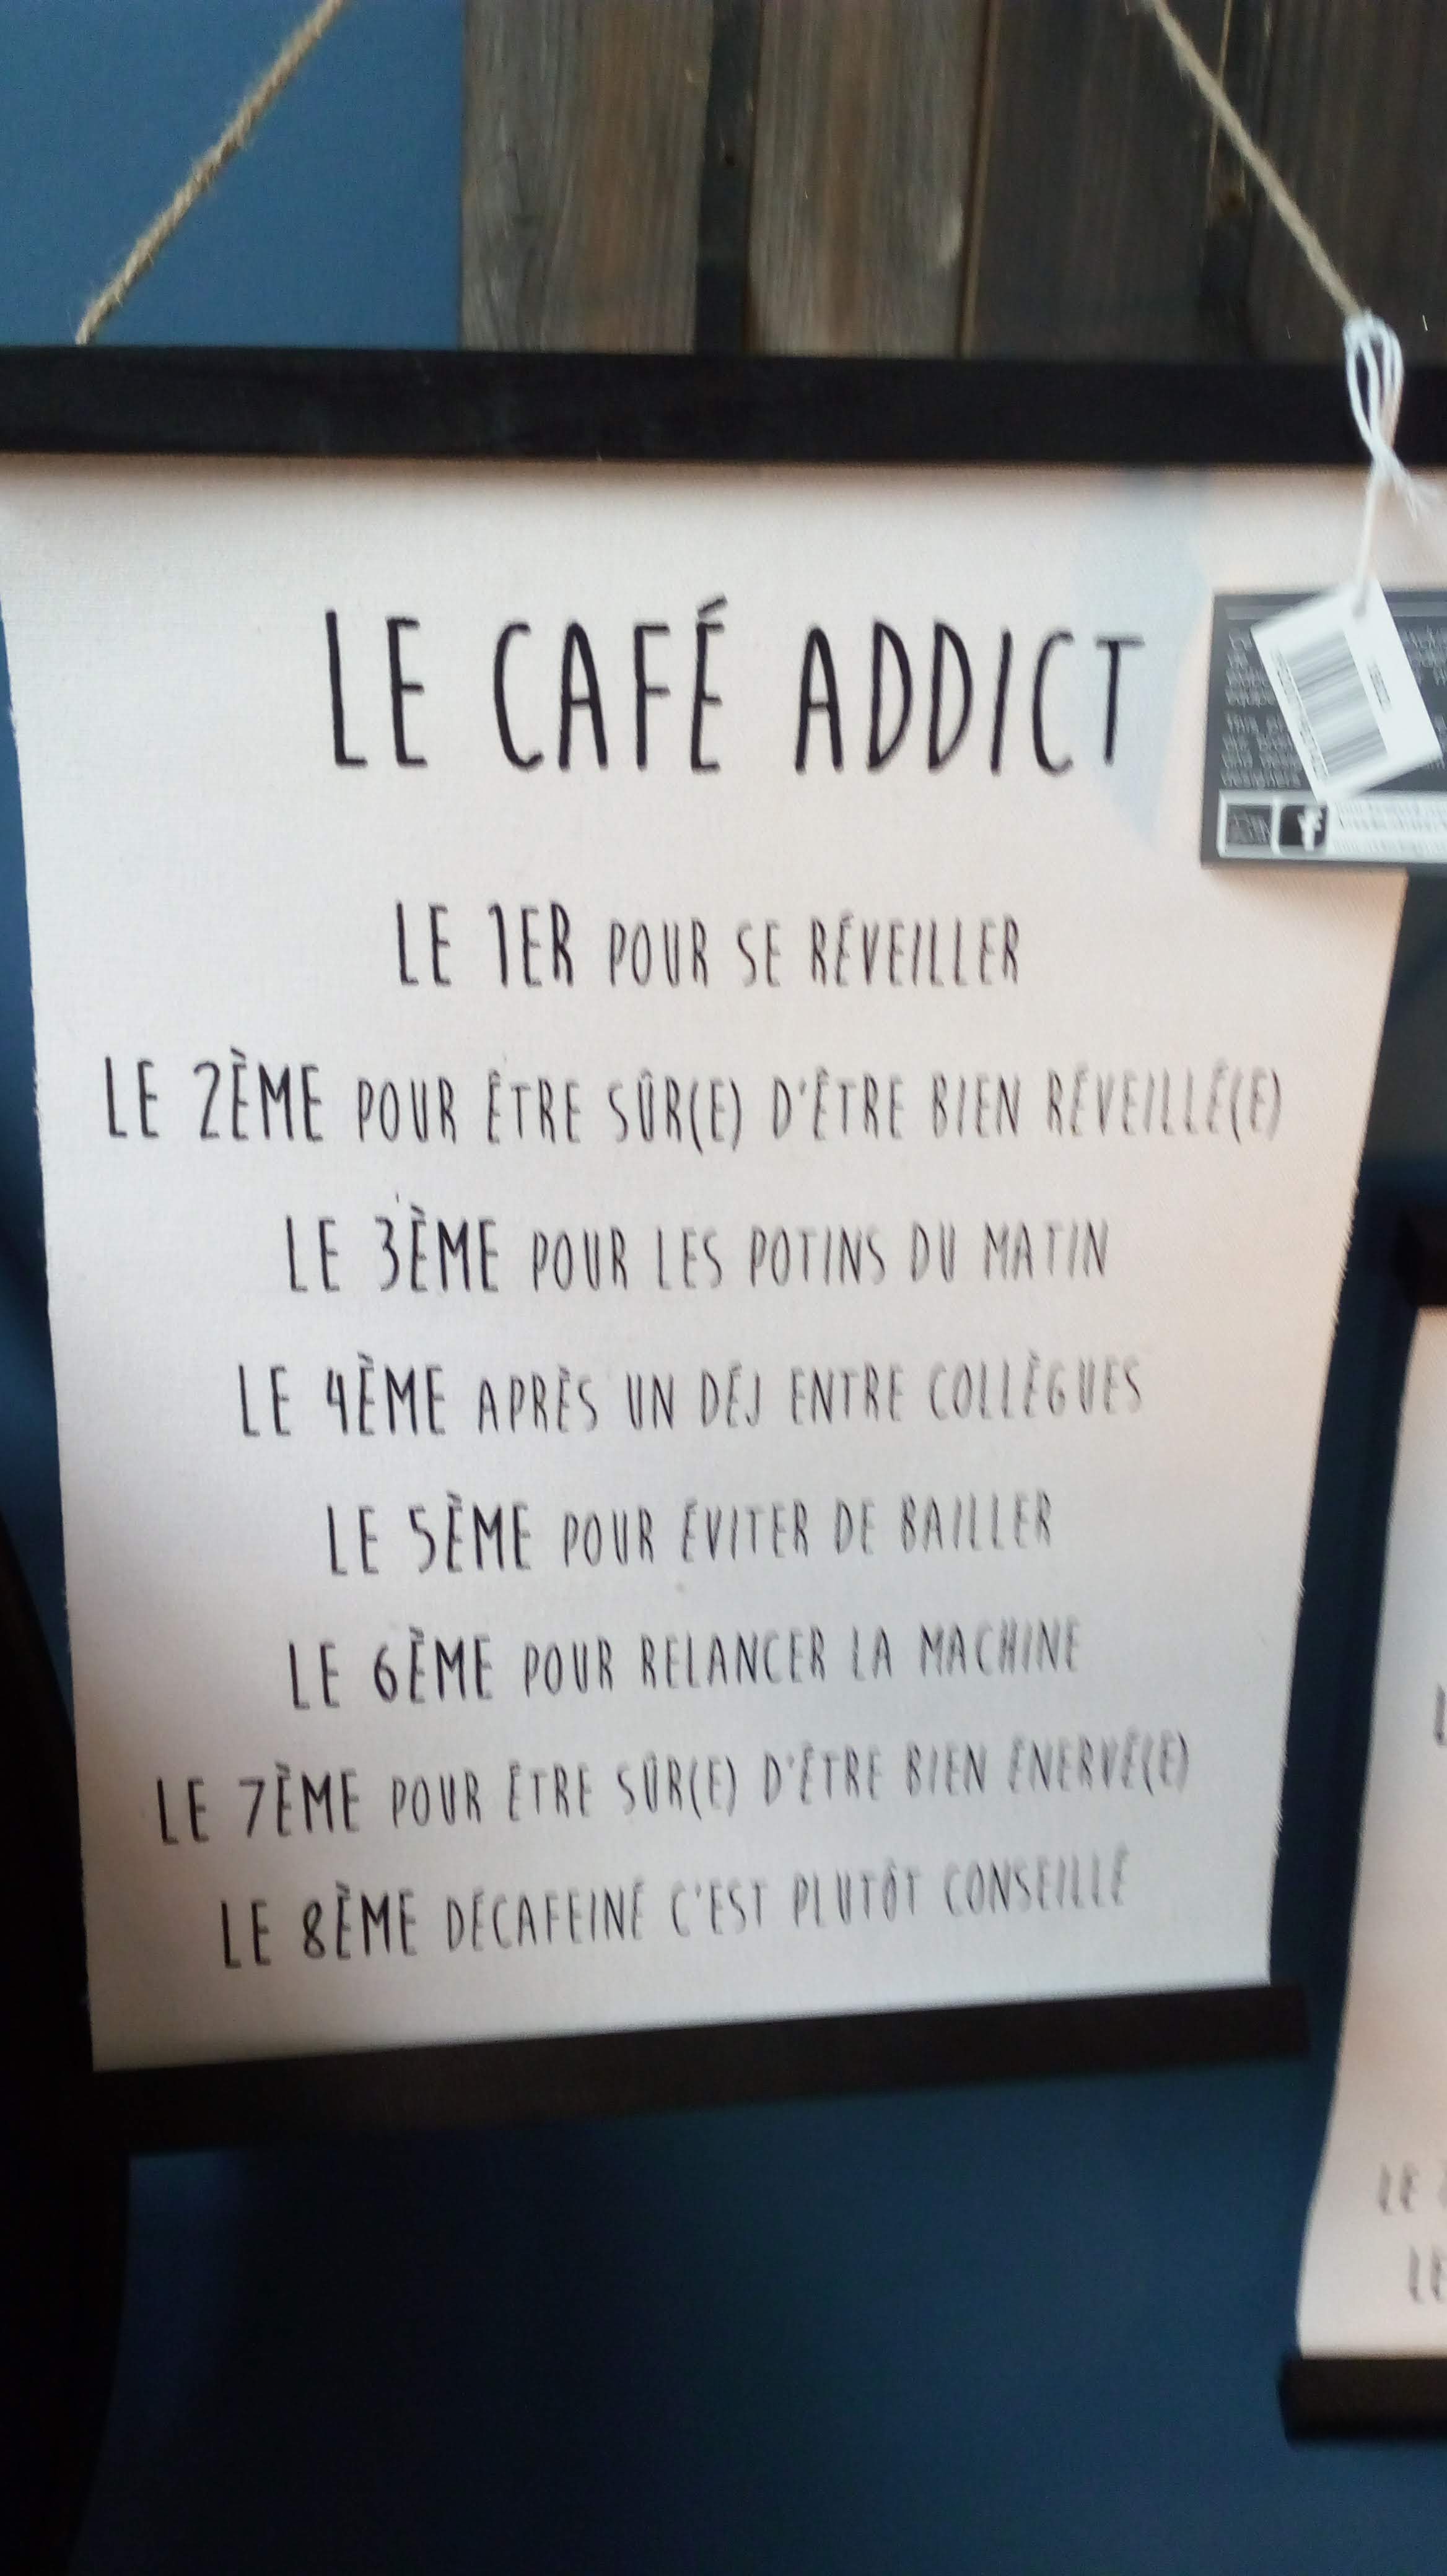 LE CAFÉ ADDICT
LE 1ER POUR SE RÉVEILLER
LE 2ÈME POUR ÊTRE SÛR(E) D'ÊTRE BIEN RÉVEILLÉ(E)
LE 3ÈME POUR LES POTINS DU MATIN
LE 4ÈME APRÈS UN DÉJ ENTRE COLLÈGUES
LE 5ÈME POUR ÉVITER DE BAILLER
LE 6ÈME POUR RELANCER LA MACHINE
LE 7ÈME POUR ÊTRE SÛR(E) D'ÊTRE BIEN ÉNERVÉ(E)
LE 8ÈME DÉCAFEINÉ C'EST PLUTÔT CONSEILLÉ
LE
LE